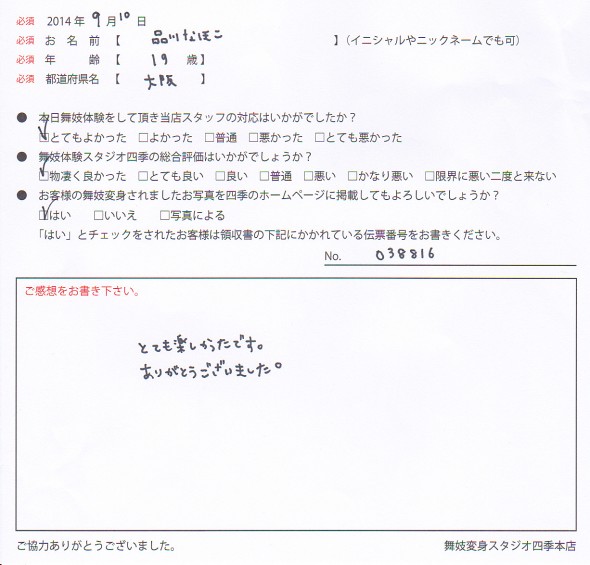 必須 2014年 9月10日
必須 お名前【 品川なほこ 】（イニシャルやニックネームでも可）
必須 年齢【 19 歳】
必須 都道府県名【 大阪 】
● 本日舞妓体験をして頂き当店スタッフの対応はいかがでしたか？
☑とてもよかった □よかった □普通 □悪かった □とても悪かった
● 舞妓体験スタジオ四季の総合評価はいかがでしょうか？
☑物凄く良かった □とても良い □良い □普通 □悪い □かなり悪い □限界に悪い二度と来ない
● お客様の舞妓変身されましたお写真を四季のホームページに掲載してもよろしいでしょうか？
☑はい □いいえ □写真による
「はい」とチェックをされたお客様は領収書の下記にかかれている伝票番号をお書きください。
No. 038816
ご感想をお書き下さい。
とても楽しかったです。
ありがとうございました。
ご協力ありがとうございました。 舞妓変身スタジオ四季本店